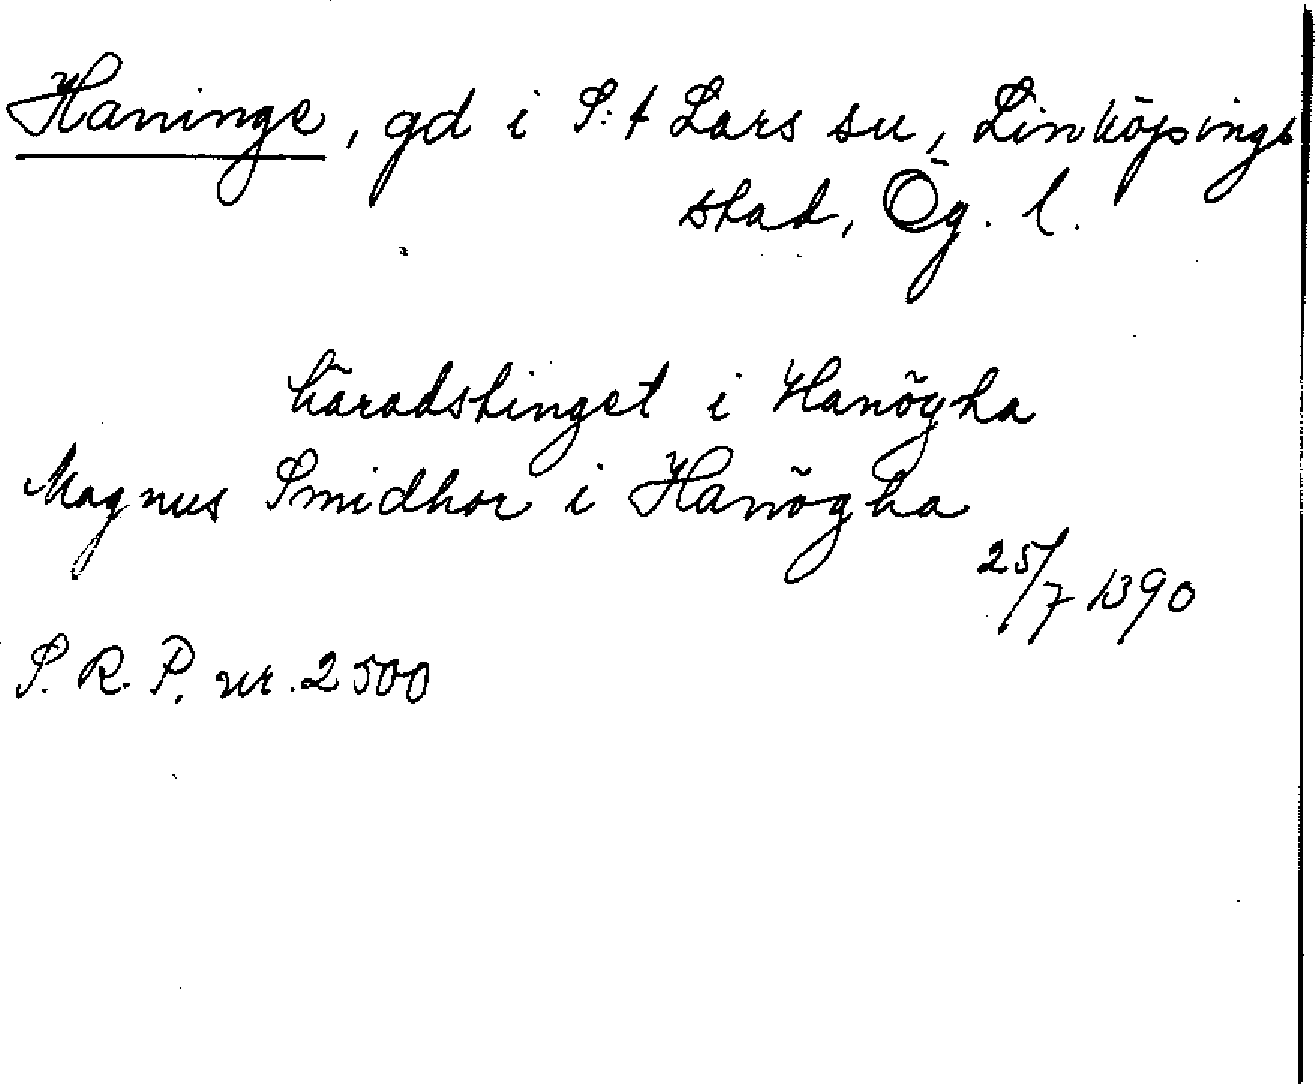 Haninge, gd i S:t Lars sn, Linköpings
stad, Ög. l.
häradstinget i Hanögha
Magnus Smidhor i Hanögha
25/7 1390
S. R. P. nr. 2500